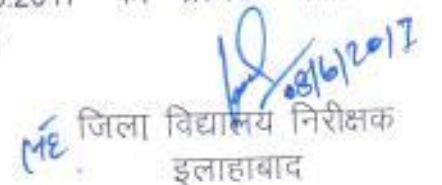 .2017
08/6/2017
जिला विद्यालय निरीक्षक
इलाहाबाद